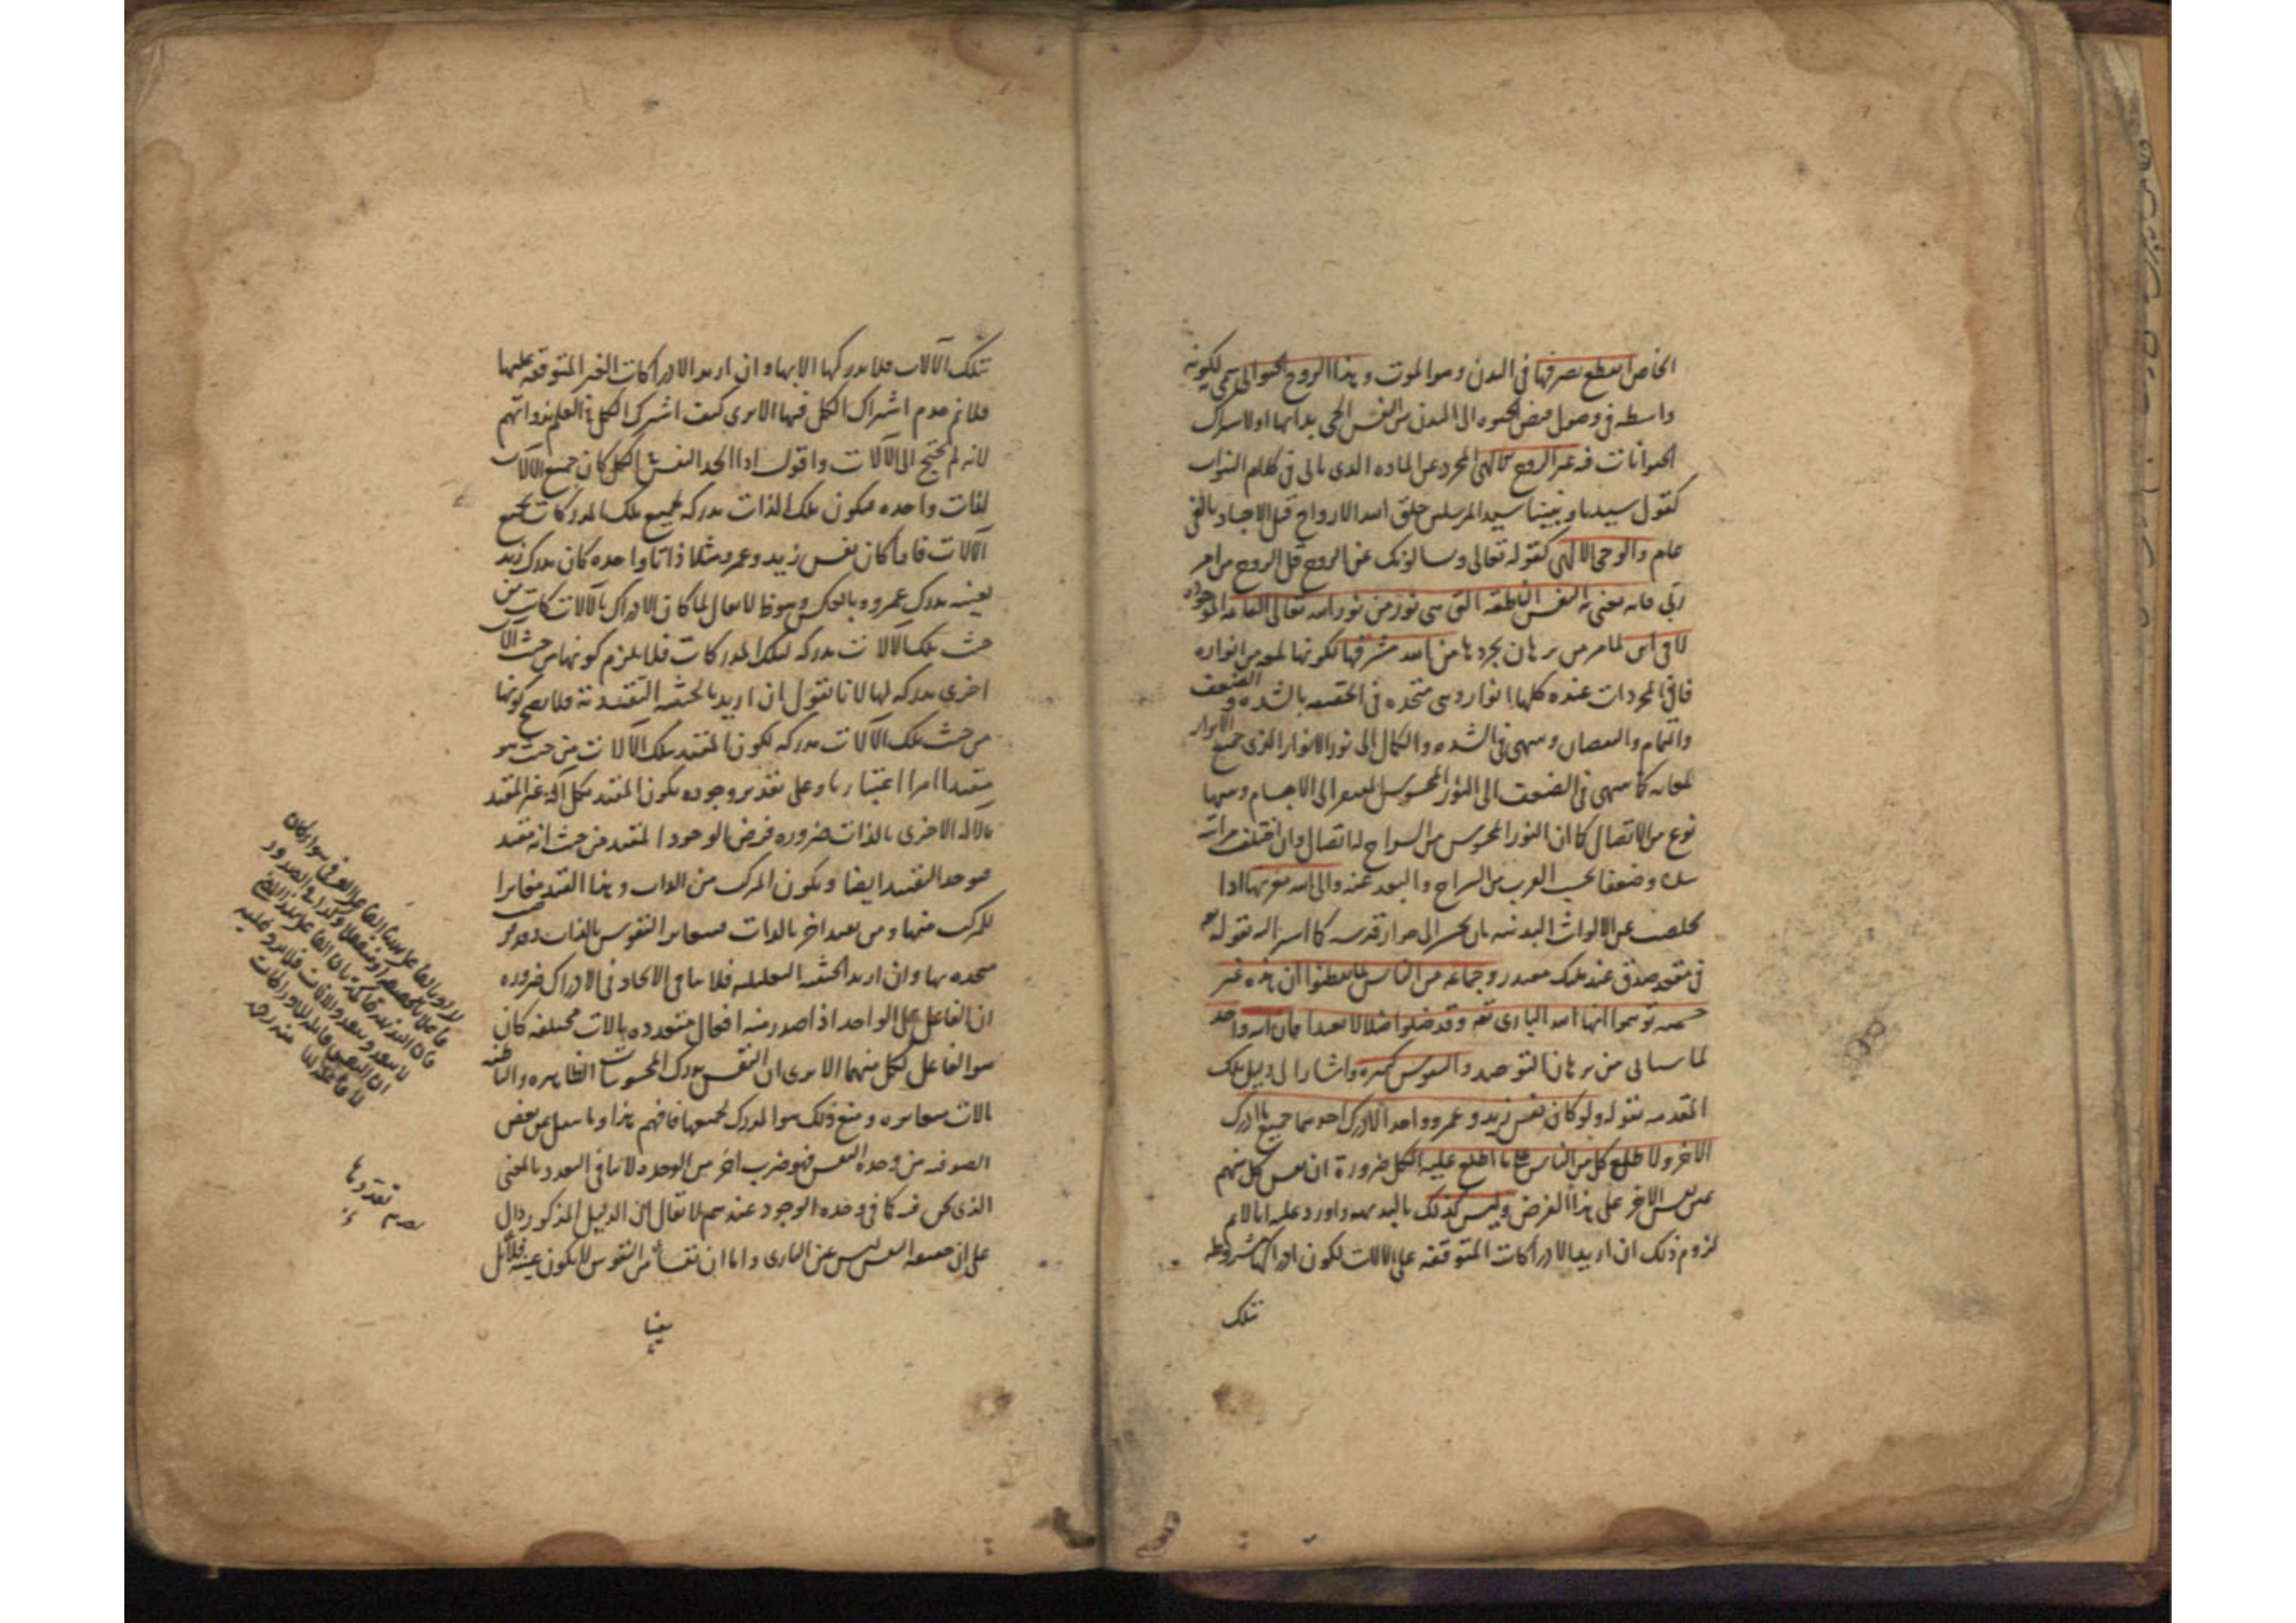 الخاص انقطع تصرفها فى البدن وهو الموت وهذا الروح الحيوانى سمى لكونه
واسطة فى وصول فيض الحيوة الى البدن من النفس الحى بذاتها اولاشتراك
الحيوانات فيه غير الروح الالهى المجرد عن المادة الذى ياتى فى كلام النبوات
كقول سيدنا ونبينا سيد المرسلين خلق الله الارواح قبل الاجساد بالفى
عام والوحى الالهى كقوله تعالى وسالونك عن الروح قل الروح من امر
ربى فانه يعنى به النفس الناطقة التى هى نور من نور الله تعالى القائمة الموجودة
لا فى اين لما مر من برهان تجردها من الله مشرقها لكونها لمعة من انواره
فان المجردات عنده كلها انوار وهى متحدة فى الحقيقة بالشدة والضعف
والتمام والنقصان وينتهى فى الشدة والكمال الى نور الانوار الذى جميع الانوار
لمعاته كما ينتهى فى الضعف الى النور المحسوس المفتقر الى الاجسام وبينها
نوع من الاتصال كما ان النور المحسوس من السراج له اتصال وان اختلف مراتبه
شدة وضعفا بحسب القرب من السراج والبعد عنه والى الله مغربها اذا
تخلصت عن الالواث البدنية بان تحشر الى جوار قدسه كما اشير اليه بقوله تعالى
فى مقعد صدق عند مليك مقتدر وجماعة من الناس لما تفطنوا ان هذه غير
جسمية توهموا انها الله البارى تعالى وقد ضلوا ضلالا بعيدا فان الله واحد
لما سياتى من برهان التوحيد والنفوس كثيرة واشار الى دليل تلك
المقدمة بقوله ولو كان نفس زيد وعمرو واحدا لادرك احدهما جميع ما ادرك
الآخر ولا طلع كل من الناس على ما اطلع عليه الكل ضرورة ان نفس كل منهم
عين نفس الآخر على هذا الفرض وليس كذلك بالبديهة واورد عليه انا لا نم
لزوم ذلك ان اريد الادراكات المتوقفة على الآلات لكون ادراكها مشروطة
بتلك
بتلك الآلات فلا يدركها الا بها وان اريد الادراكات الغير المتوقفة عليها
فلا نم عدم اشتراك الكل فيها الا يرى كيف اشترك الكل فى العلم بذواتهم
لانه لم يحتج الى الآلات واقول اذا اتحد النفس فى الكل كان جميع الآلات
لذات واحدة فيكون تلك الذات مدركة لجميع تلك المدركات بجميع
الآلات فاذا كان نفس زيد وعمرو مثلا ذاتا واحدة كان مدرك زيد
بعينه مدرك عمرو وبالعكس وهو ظ لا يقال لما كان الادراك بالآلات كانت من
حيث تلك الآلات مدركة لتلك المدركات فلا يلزم كونها من حيث آلات
اخرى مدركة لها لانا نقول ان اريد بالحيثية التقييدية فلا يصح كونها
من حيث تلك الآلات مدركة لكون المقيد بتلك الآلات من حيث هو
مقيد امرا اعتباريا وعلى تقدير وجوده يكون المقيد بكل آلة غير المقيد
بالآلة الاخرى بالذات ضرورة فرض الوجود المقيد من حيث انه مقيد
فيوجد التقييد ايضا ويكون المركب من الذات وهذا القيد مغايرا
للمركب منها ومن قيد آخر بالذات فيتغاير النفوس بالذات وقد فرض
متحدة بها وان اريد الحيثية التعليلية فلا ينافى الاتحاد فى الادراك ضرورة
ان الفاعل الواحد اذا صدر منه افعال متعددة بآلات مختلفة كان
هو الفاعل لكل منهما الا يرى ان النفس يدرك المحسوسات الظاهرة والباطنة
بآلات متغايرة ومع ذلك هو المدرك لجميعها فافهم هذا وما ينقل عن بعض
الصوفية من وحدة النفس فهو ضرب آخر من الوحدة لا ينافى التعدد بالمعنى
الذى نحن فيه كما فى وحدة الوجود عندهم لا يقال ان الدليل المذكور دال
على ان حقيقة النفس ليس عين البارى واما ان نفسا من النفوس لا يكون عينه فلا لان
تقدوها